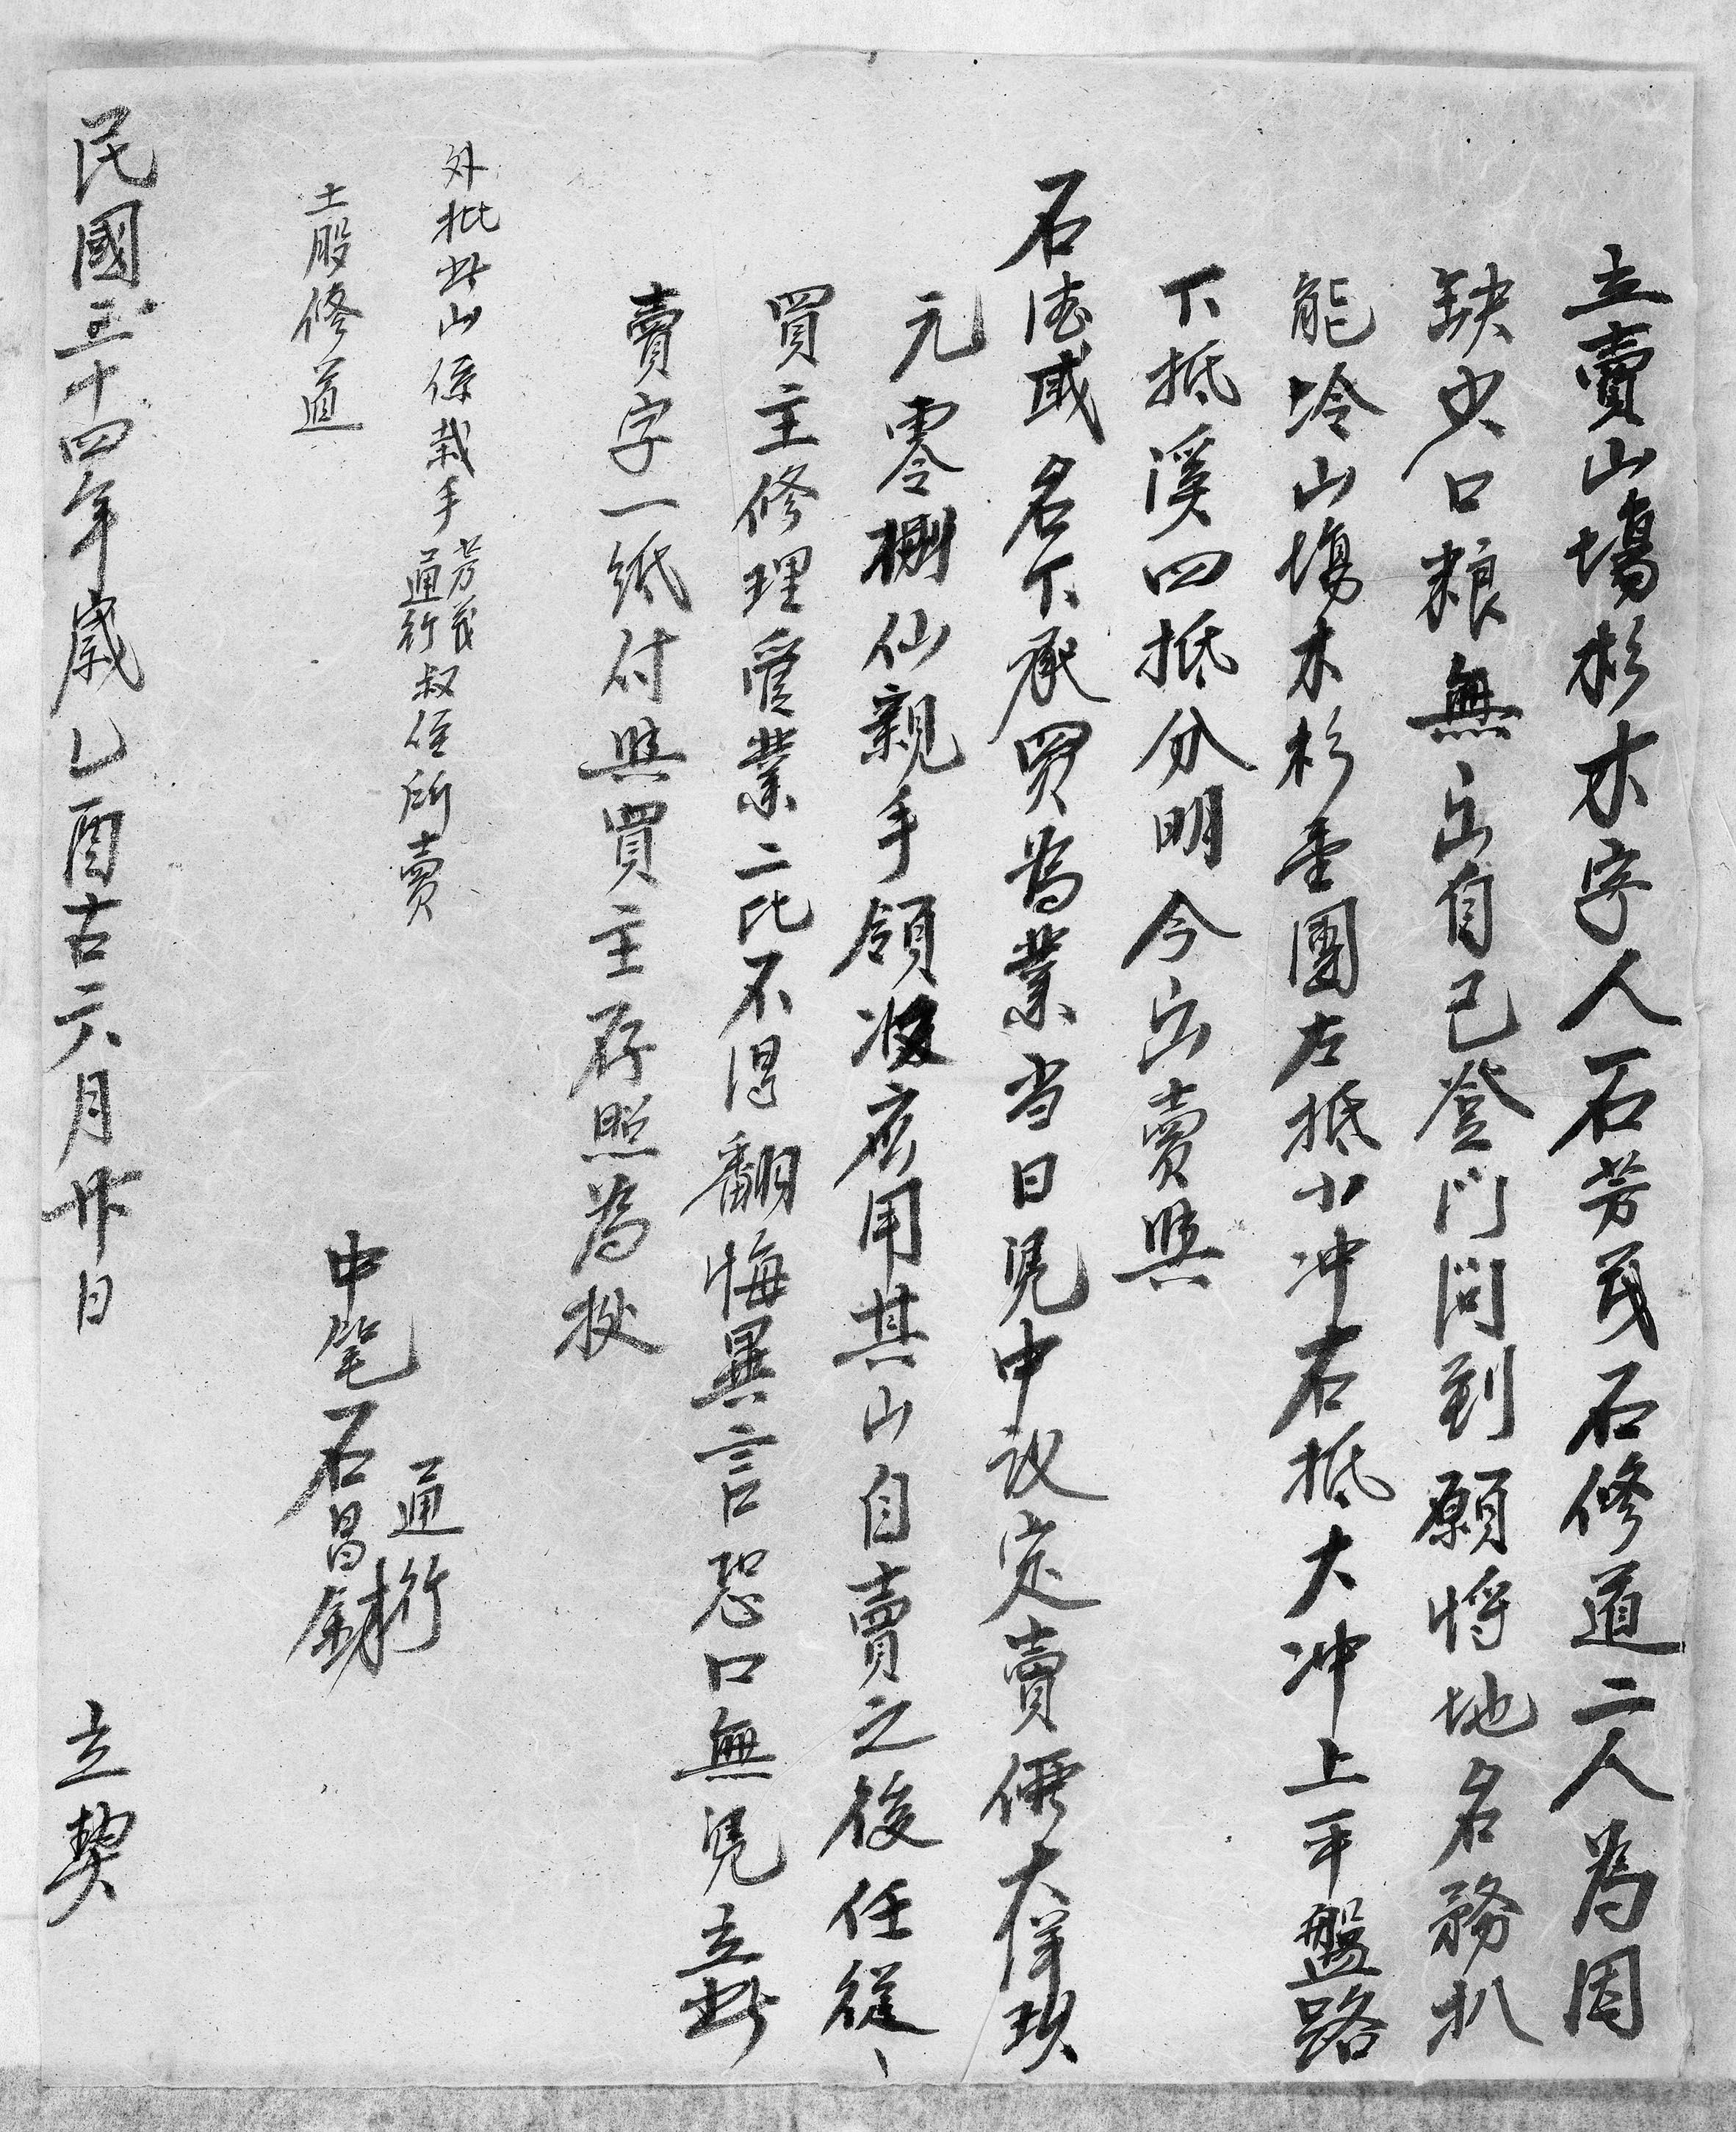 立賣山塲杉木字人石芳茂石修道二人為因
缺少口粮無出自己登門問到願将地名務扒
能冷山塲木杉壹團左抵小冲右抵大冲上平盤路
下抵溪四抵分明今出賣與
石德咸名下承買為業当日凴中议定賣價大洋玖
元零捌仙親手領收應用其山自賣之後任從
買主修理管業二比不得翻悔異言恐口無凴立此
賣字一纸付與買主存照為授
外批此山係栽手芳茂通行叔侄所賣
土股修道
通行
中笔石昌財
民國三十四年歲乙酉古六月廾日 立契